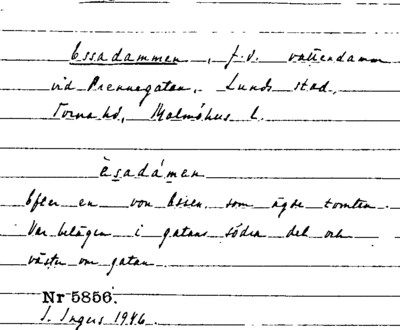 Essadammen, f.d. vattendamm
vid Prennegatan, Lunds stad,
Torna hd, Malmöhus l.
èsadámen
Efter en von Essen som ägde tomten.
Var belägen i gatans södra del och
väster om gatan.
Nr 5856.
I. Ingers 1946.